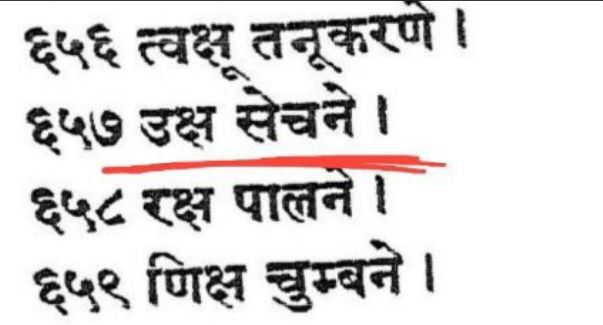 ६५६ त्वक्षू तनूकरणे ।
६५७ उक्ष सेचने ।
६५८ रक्ष पालने ।
६५९ णिक्ष चुम्बने ।